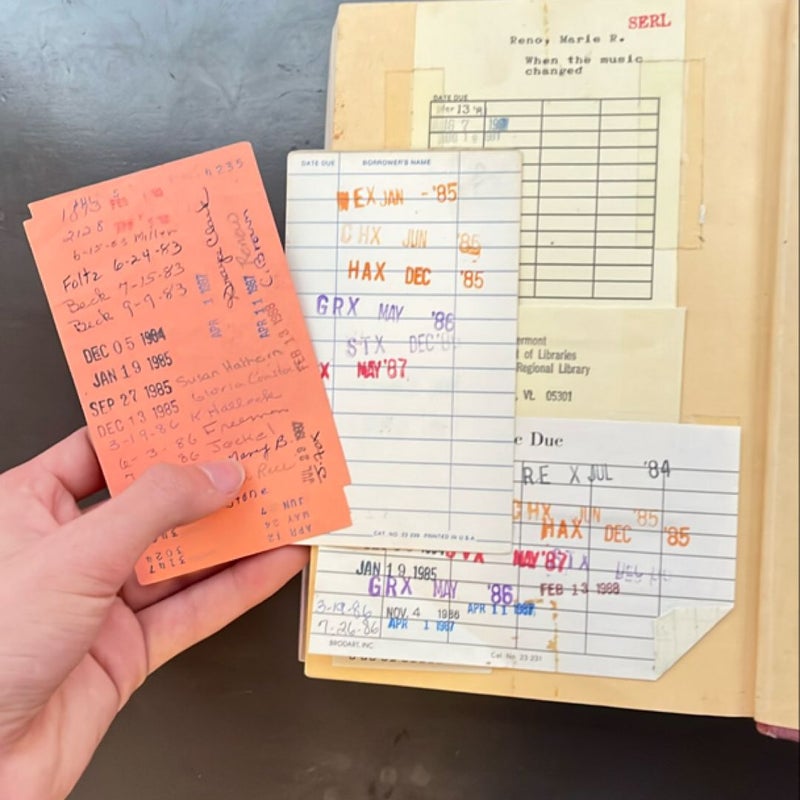 SERL
Reno, Marie R.
When the music
changed
DATE DUE
Mar 13 '81
AUG 7 1981
DATE DUE BORROWER'S NAME
EX JAN - '85
CHX JUN '85
HAX DEC '85
GRX MAY '86
STX DEC '86
X MAY '87
CAT. NO. 23 239 PRINTED IN U.S.A.
6235
1845
2128
6-15-83 Miller
Foltz 6-24-83
Beck 7-15-83
Beck 9-9-83
DEC 05 1984
JAN 19 1985
SEP 27 1985 Susan
DEC 13 1985 Gloria
3-19-86 K
6-3-86 Freeman
86 Jackel
Mary B
Stone
JUN 7
MAY 24
APR 12
3024
3147
APR 1 1987
APR 11 1987 C. Brown
FEB 13 1988
ermont
t of Libraries
Regional Library
Vt. 05301
e Due
RE X JUL '84
CHX JUN '85
HAX DEC '85
MAY '87
JAN 19 1985
GRX MAY '86 FEB 13 1988
3-19-86 NOV. 4 1986 APR 11 1987
7-26-86 APR 1 1987
BRODART, INC. Cat. No. 23 231